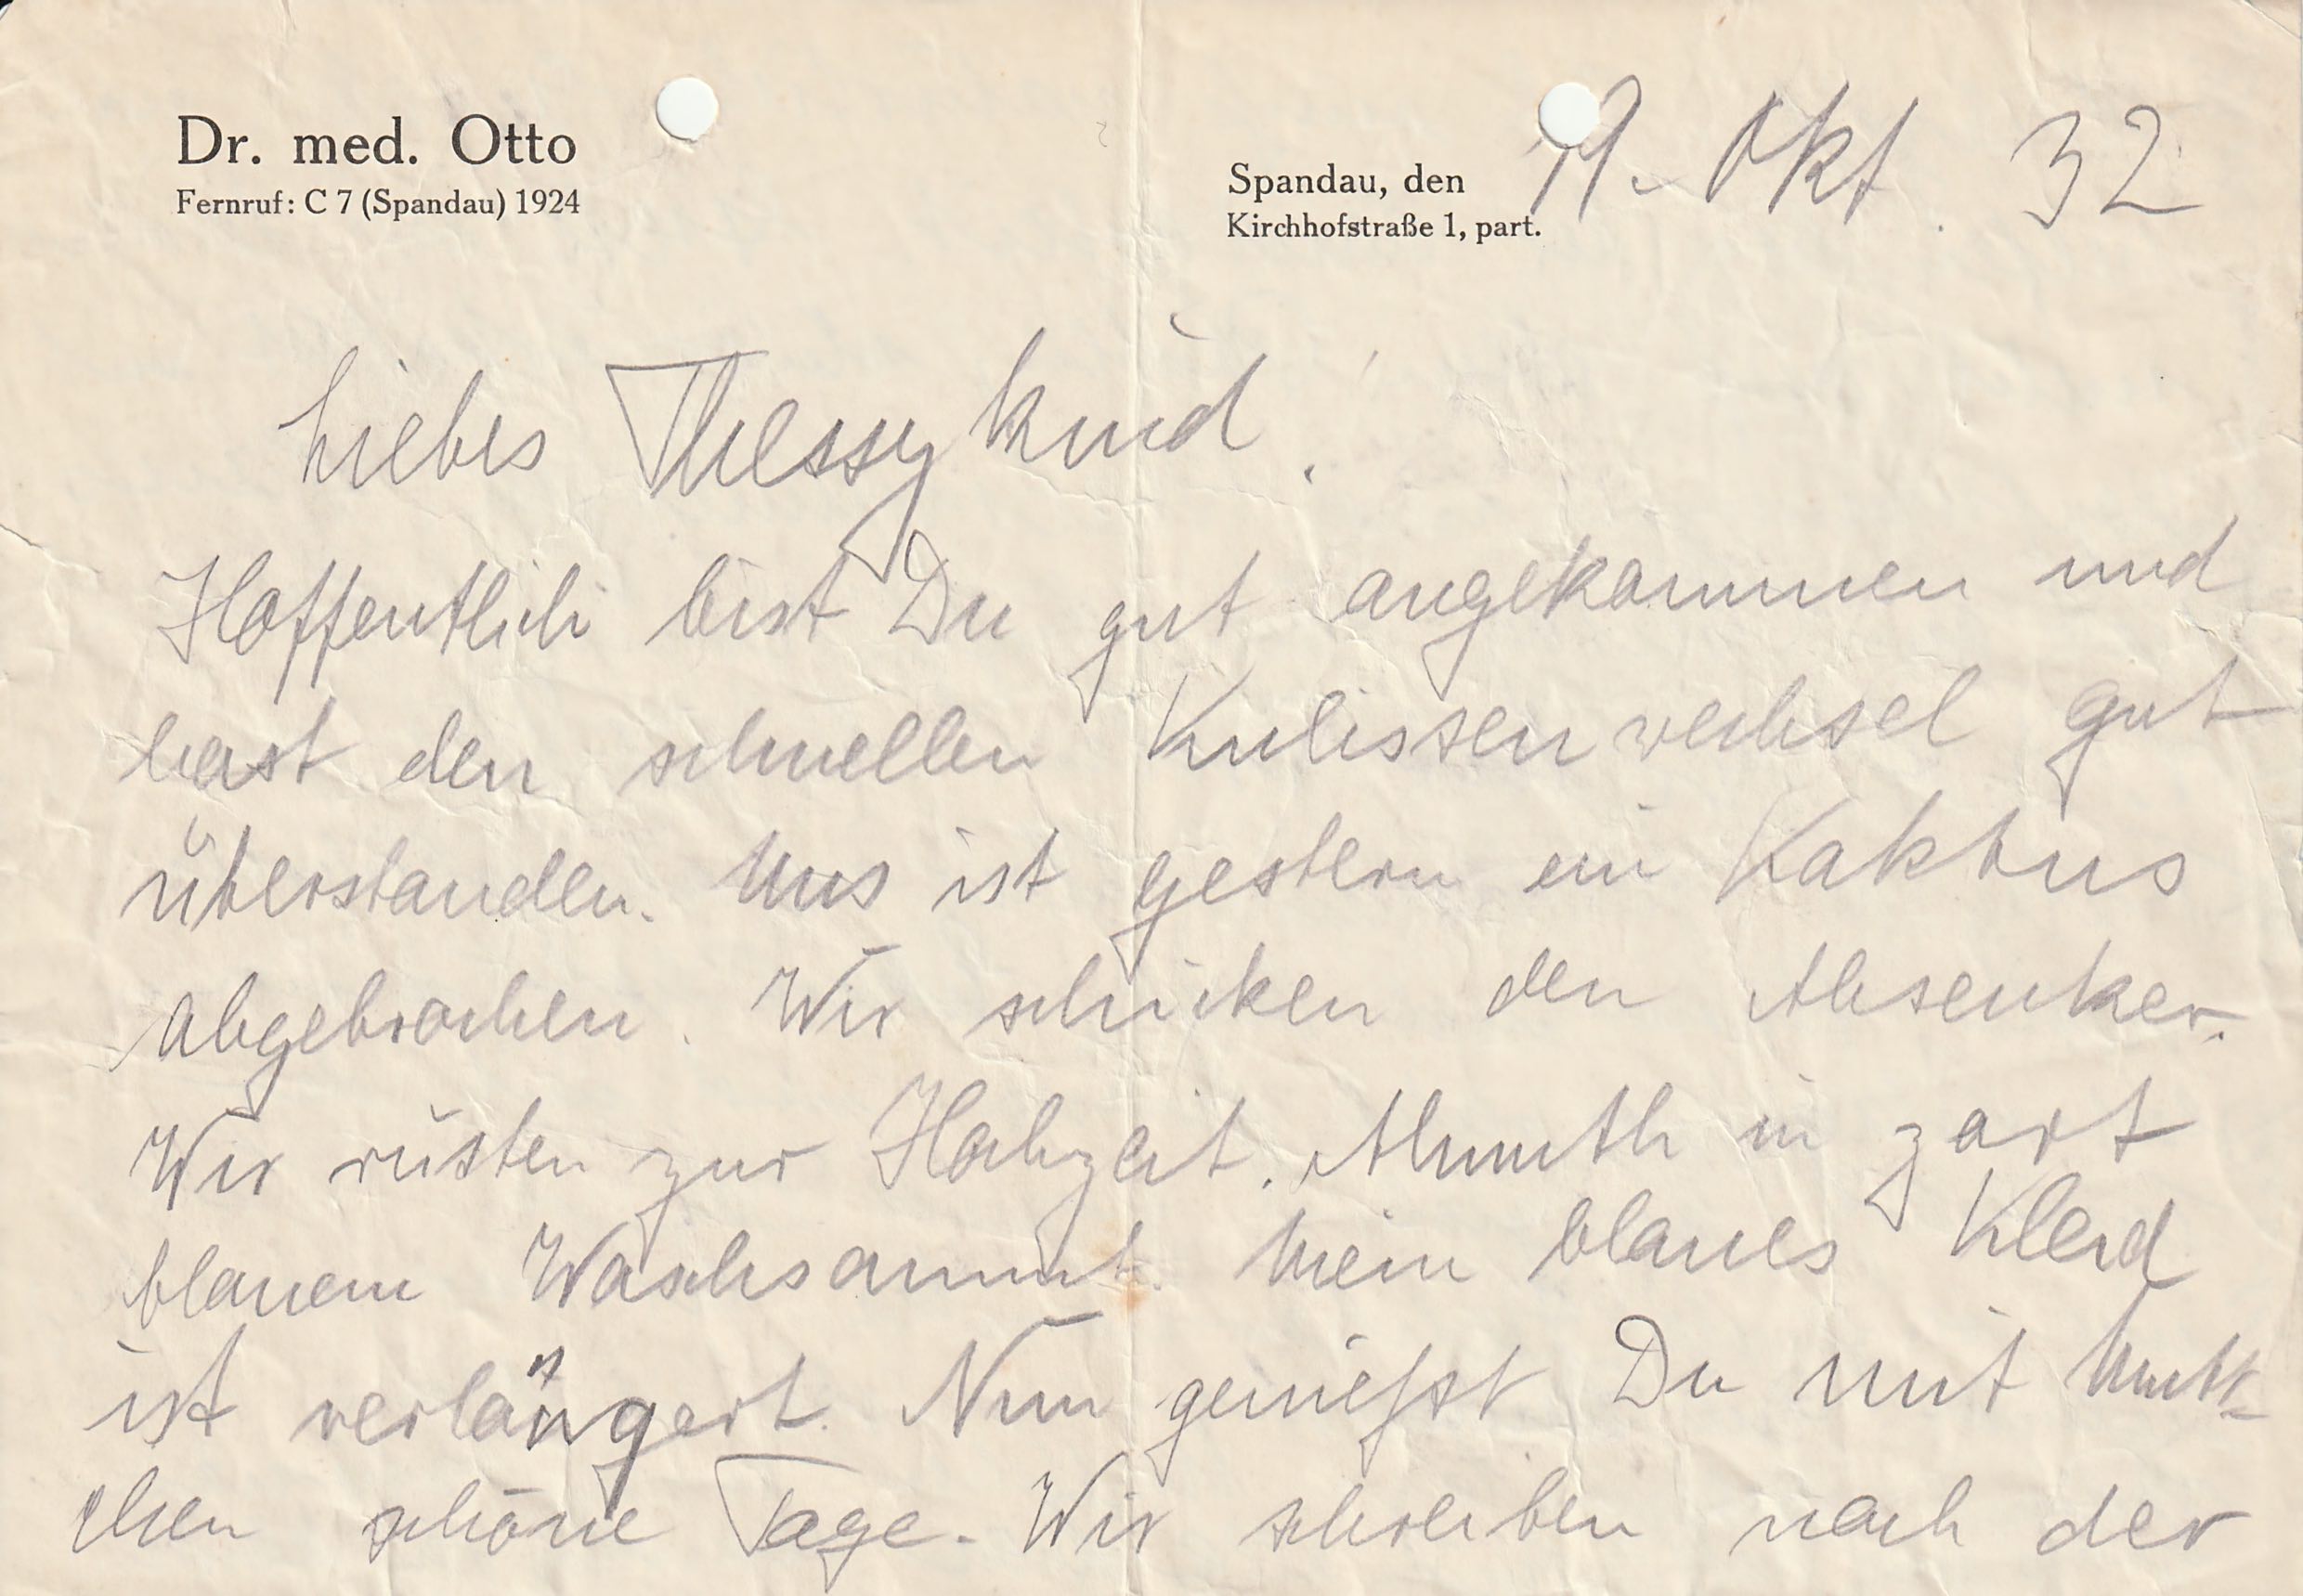 Dr. med. Otto
Fernruf: C 7 (Spandau) 1924
Spandau, den 19. Okt. 32
Kirchhofstraße 1, part.
Liebes Thessykind.
Hoffentlich bist Du gut angekommen und
hast den schnellen Kulissenwechsel gut
überstanden. Uns ist gestern ein Kaktus
abgebrochen. Wir schicken den Absenker.
Wir rüsten zur Hochzeit. Almuth in zart
blauem Waschsammt. Mein blaues Kleid
ist verlängert. Nun genießst Du mit Mutt-
chen schöne Tage. Wir schreiben nach der